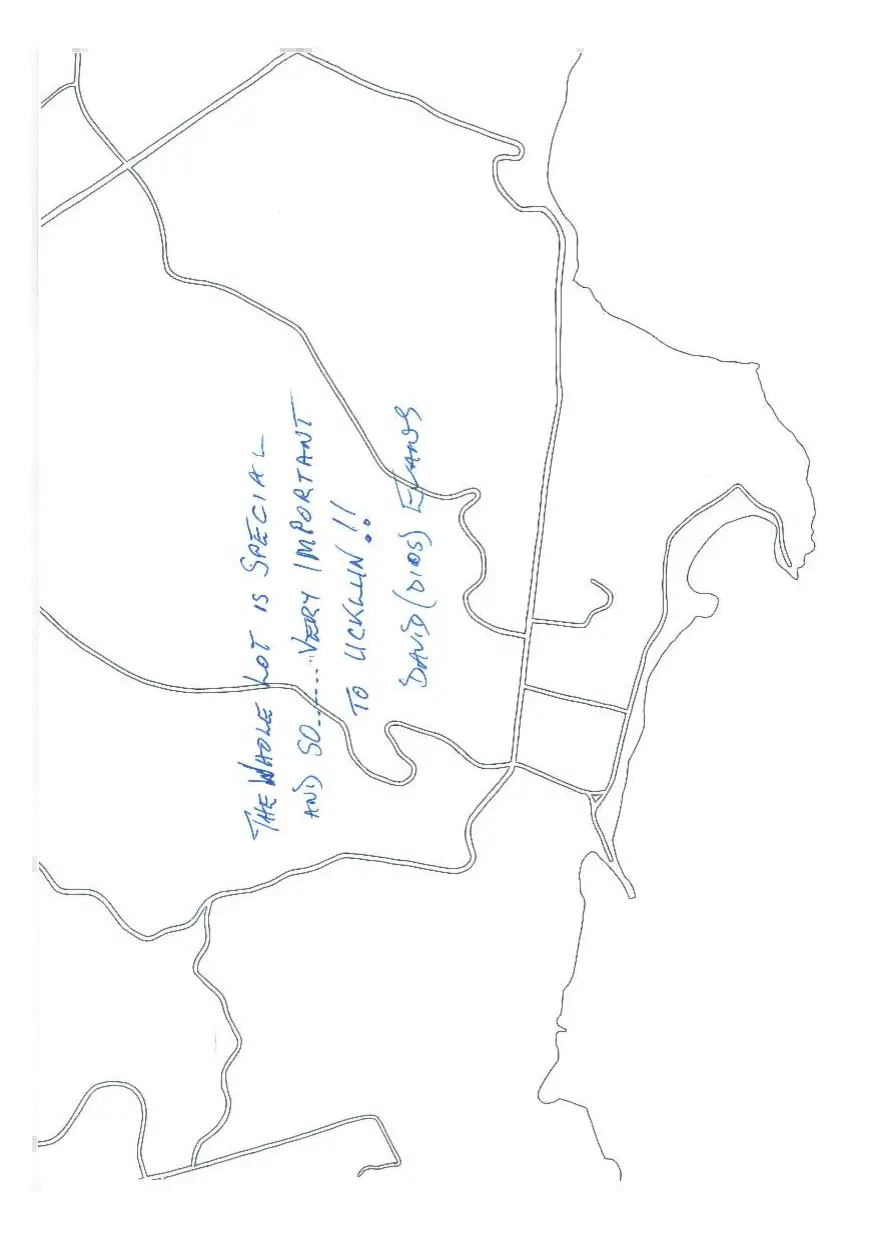 THE WHOLE LOT IS SPECIAL
AND SO....... VERY IMPORTANT
TO UCKLUN!!
DAVID (DIOS) EVANS